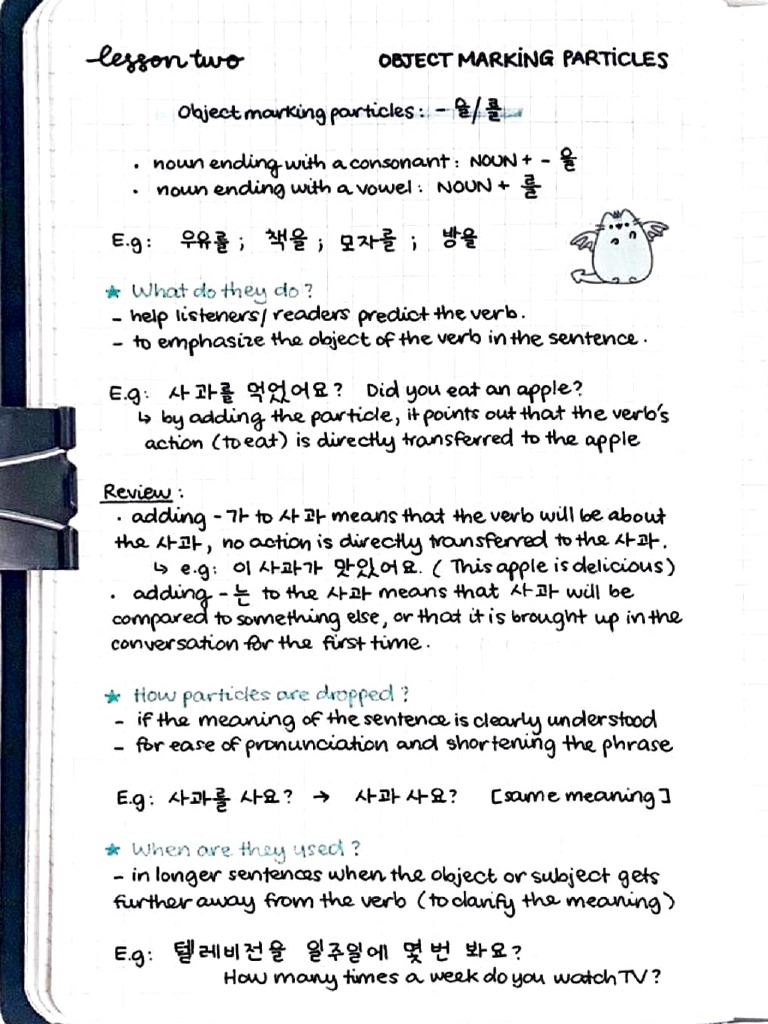 lesson two
OBJECT MARKING PARTICLES
Object marking particles: - 을/를
· noun ending with a consonant: NOUN + - 을
· noun ending with a vowel: NOUN + 를
E.g: 우유를 ; 책을 ; 모자를 ; 방을
★ What do they do?
- help listeners/readers predict the verb.
- to emphasize the object of the verb in the sentence.
E.g: 사과를 먹었어요? Did you eat an apple?
↳ by adding the particle, it points out that the verb's
action (to eat) is directly transferred to the apple
Review:
· adding -가 to 사과 means that the verb will be about
the 사과, no action is directly transferred to the 사과.
↳ e.g: 이 사과가 맛있어요. (This apple is delicious)
· adding -는 to the 사과 means that 사과 will be
compared to something else, or that it is brought up in the
conversation for the first time.
★ How particles are dropped?
- if the meaning of the sentence is clearly understood
- for ease of pronunciation and shortening the phrase
E.g: 사과를 사요? → 사과 사요? [same meaning]
★ When are they used?
- in longer sentences when the object or subject gets
further away from the verb (to clarify the meaning)
E.g: 텔레비전을 일주일에 몇 번 봐요?
How many times a week do you watch TV?